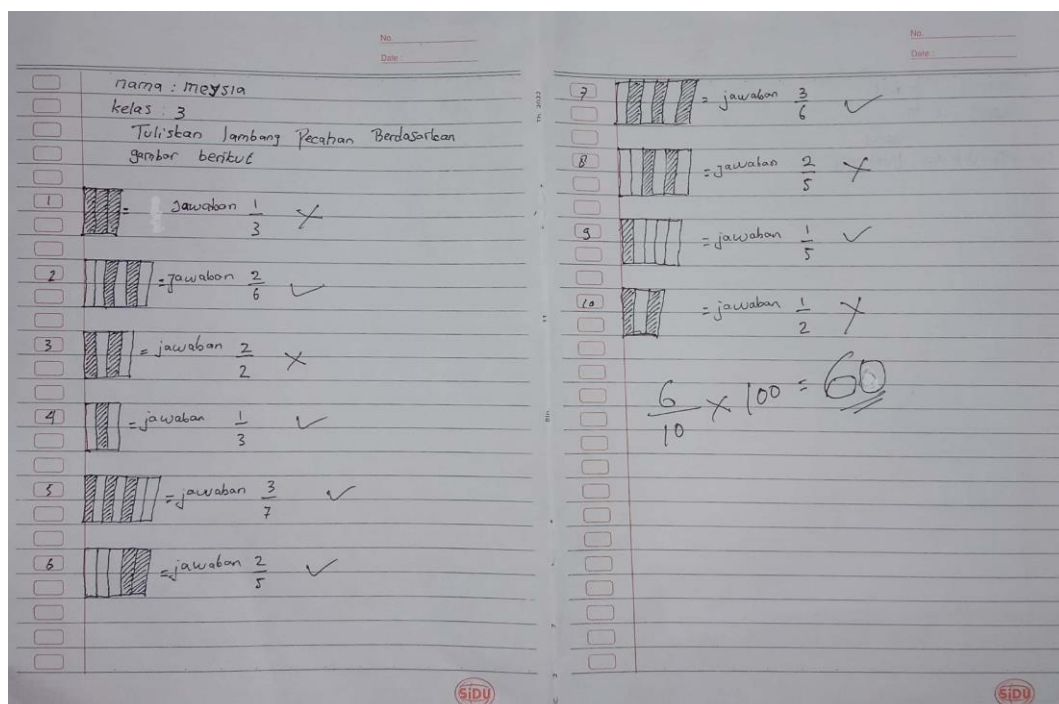 No.
Date :
nama : meysia
kelas : 3
Tuliskan lambang Pecahan Berdasarkan
gambar berikut
1 = Jawaban 1/3 ✗
2 = Jawaban 2/6 ✓
3 = jawaban 2/2 ✗
4 = jawaban 1/3 ✓
5 = jawaban 3/7 ✓
6 = jawaban 2/5 ✓
SiDU
No.
Date :
7 = jawaban 3/6 ✓
8 = jawaban 2/5 ✗
9 = jawaban 1/5 ✓
10 = jawaban 1/2 ✗
6/10 × 100 = 60
SiDU